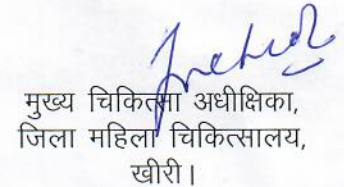 मुख्य चिकित्सा अधीक्षिका,
जिला महिला चिकित्सालय,
खीरी।